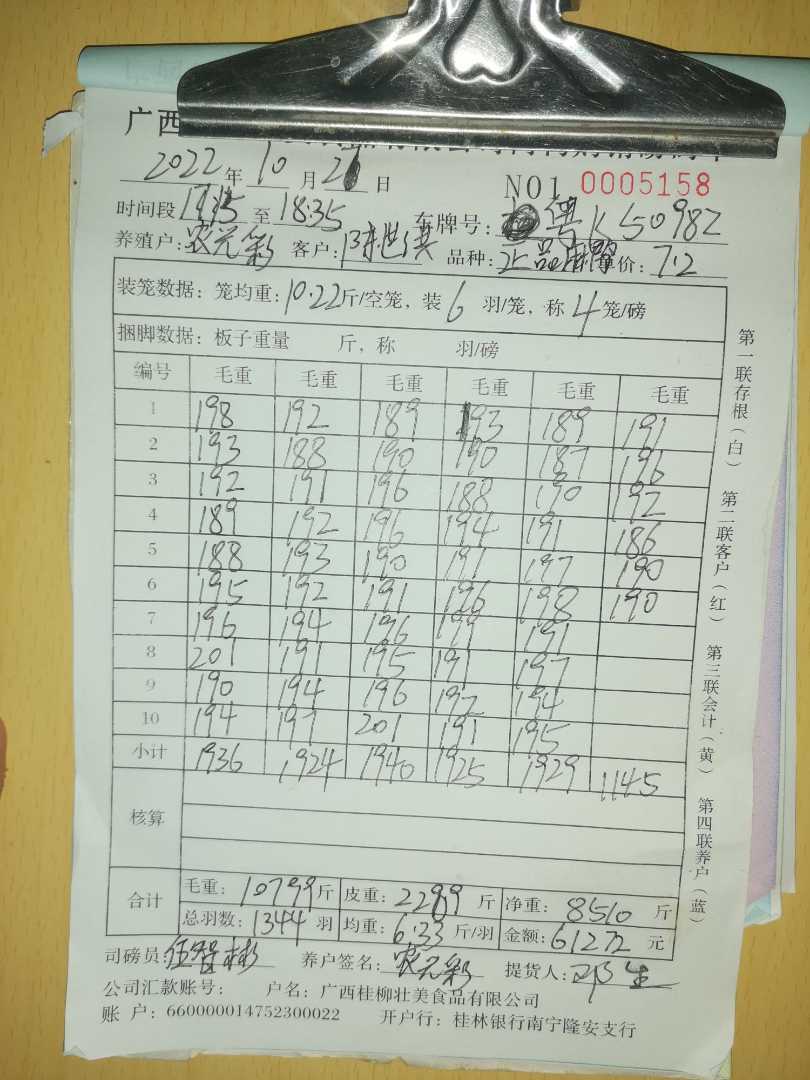 广西
2022年10月26日 NO1 0005158
时间段 17:15 至 18:35 车牌号: 粤K50982
养殖户: 农元彩 客户: 陈世洪 品种: 正品麻鸭 单价: 7.2
装笼数据: 笼均重: 10.22斤/空笼, 装 6 羽/笼, 称 4 笼/磅
捆脚数据: 板子重量 斤, 称 羽/磅
编号 毛重 毛重 毛重 毛重 毛重 毛重
1 198 192 189 193 189 191
2 193 188 190 190 187 196
3 192 191 196 188 190 192
4 189 192 196 194 191 186
5 188 193 190 191 197 190
6 195 192 191 196 198 190
7 196 194 196 199 191
8 201 191 195 191 197
9 190 194 196 192 194
10 194 197 201 191 195
小计 1936 1924 1940 1925 1929 1145
核算
合计 毛重: 10799斤 皮重: 2289斤 净重: 8510斤
总羽数: 1344羽 均重: 6.33斤/羽 金额: 61272元
司磅员: 伍智彬 养户签名: 农元彩 提货人: 邓生
公司汇款账号: 户名: 广西桂柳壮美食品有限公司
账 户: 660000014752300022 开户行: 桂林银行南宁隆安支行
第一联存根(白) 第二联客户(红) 第三联会计(黄) 第四联养户(蓝)